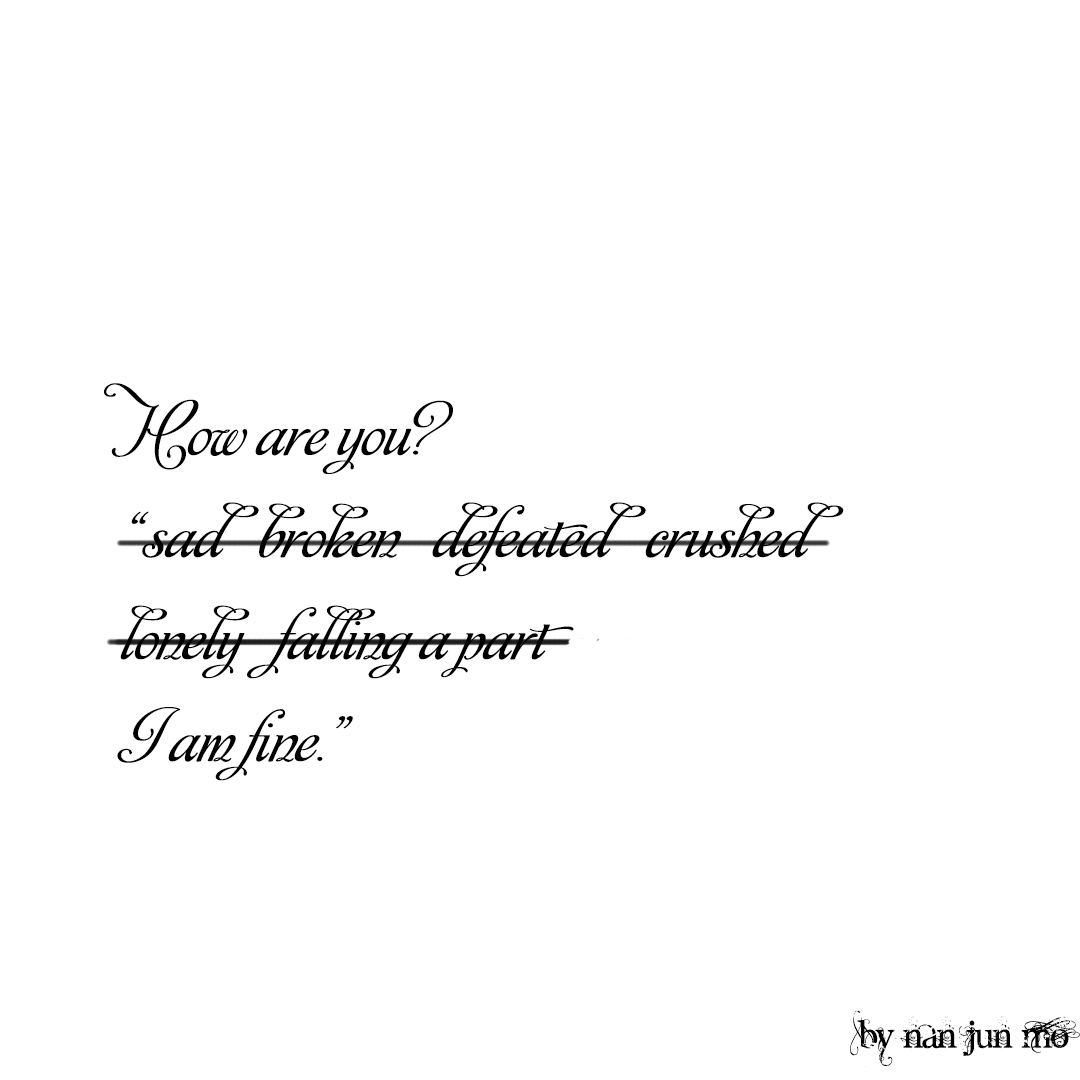 How are you?
“sad broken defeated crushed
lonely falling a part
I am fine.”
by nan jun mo